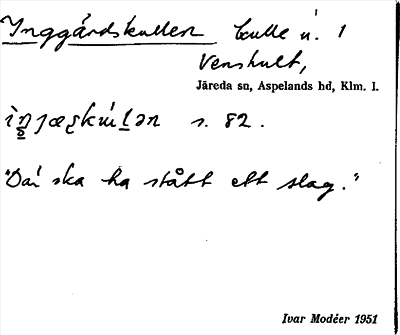 Ynggårdskullen kulle ú. 1
Venshult,
Järeda sn, Aspelands hd, Klm. l.
s. 82.
"Där ska ha stått ett slag."
Ivar Modéer 1951